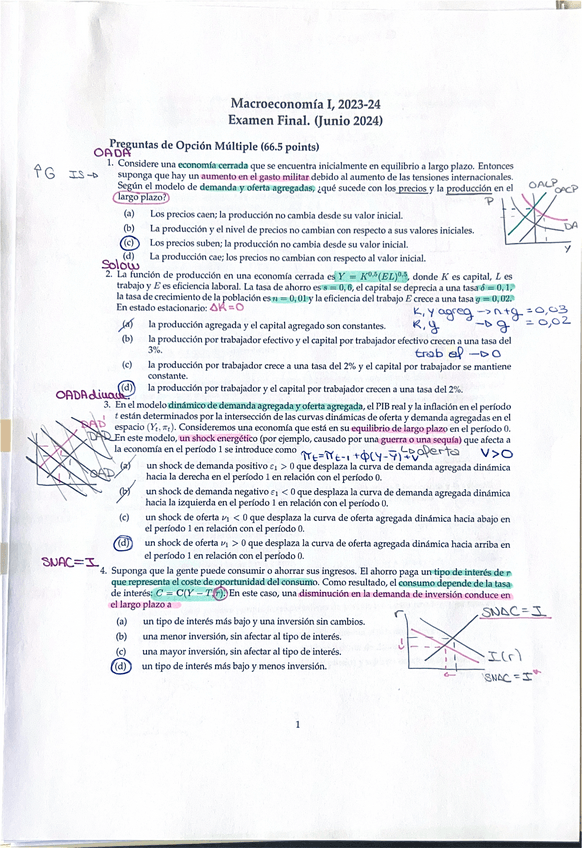 Macroeconomía I, 2023-24
Examen Final. (Junio 2024)
Preguntas de Opción Múltiple (66.5 puntos)
OADA
↑G IS→
1. Considere una economía cerrada que se encuentra inicialmente en equilibrio a largo plazo. Entonces
suponga que hay un aumento en el gasto militar debido al aumento de las tensiones internacionales.
Según el modelo de demanda y oferta agregadas, ¿qué sucede con los precios y la producción en el
largo plazo?
(a) Los precios caen; la producción no cambia desde su valor inicial.
(b) La producción y el nivel de precios no cambian con respecto a sus valores iniciales.
(c) Los precios suben; la producción no cambia desde su valor inicial.
(d) La producción cae; los precios no cambian con respecto a su valor inicial.
OALP
OACP
P
DA
Y
Solow
2. La función de producción en una economía cerrada es Y = K^0,5(EL)^0,5, donde K es capital, L es
trabajo y E es eficiencia laboral. La tasa de ahorro es s = 0,6, el capital se deprecia a una tasa δ = 0,1,
la tasa de crecimiento de la población es n = 0,01 y la eficiencia del trabajo E crece a una tasa g = 0,02.
En estado estacionario: ΔK=0
K, Y agreg → n+g = 0,03
K, Y → g = 0,02
(a) la producción agregada y el capital agregado son constantes.
(b) la producción por trabajador efectivo y el capital por trabajador efectivo crecen a una tasa del
3%.
trab ef → 0
(c) la producción por trabajador crece a una tasa del 2% y el capital por trabajador se mantiene
constante.
(d) la producción por trabajador y el capital por trabajador crecen a una tasa del 2%.
OADA dinam.
3. En el modelo dinámico de demanda agregada y oferta agregada, el PIB real y la inflación en el período
t están determinados por la intersección de las curvas dinámicas de oferta y demanda agregadas en el
espacio (Yt, πt). Consideremos una economía que está en su equilibrio de largo plazo en el período 0.
En este modelo, un shock energético (por ejemplo, causado por una guerra o una sequía) que afecta a
la economía en el período 1 se introduce como
↳ oferta
πt = πt-1 + ϕ(Y-Y̅)+v V>0
DAD'
DAD
OAD
(a) un shock de demanda positivo ε1 > 0 que desplaza la curva de demanda agregada dinámica
hacia la derecha en el período 1 en relación con el período 0.
(b) un shock de demanda negativo ε1 < 0 que desplaza la curva de demanda agregada dinámica
hacia la izquierda en el período 1 en relación con el período 0.
(c) un shock de oferta ν1 < 0 que desplaza la curva de oferta agregada dinámica hacia abajo en
el período 1 en relación con el período 0.
(d) un shock de oferta ν1 > 0 que desplaza la curva de oferta agregada dinámica hacia arriba en
el período 1 en relación con el período 0.
SNAC=I
4. Suponga que la gente puede consumir o ahorrar sus ingresos. El ahorro paga un tipo de interés de r
que representa el coste de oportunidad del consumo. Como resultado, el consumo depende de la tasa
de interés: C = C(Y − T, r). En este caso, una disminución en la demanda de inversión conduce en
el largo plazo a
(a) un tipo de interés más bajo y una inversión sin cambios.
(b) una menor inversión, sin afectar al tipo de interés.
(c) una mayor inversión, sin afectar al tipo de interés.
(d) un tipo de interés más bajo y menos inversión.
r
SNAC = I
I(r)
SNAC = I*
1